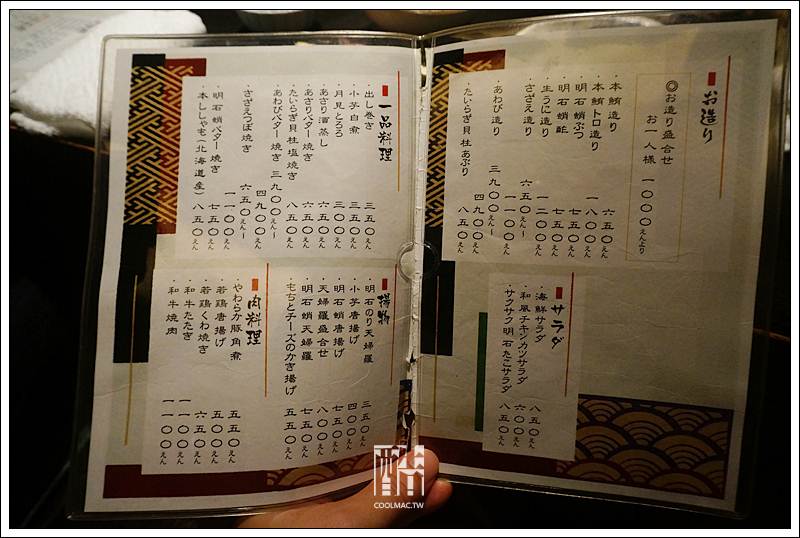 お造り
◎お造り盛合せ
お一人様 一〇〇〇えんより
・本鮪造り 六五〇えん
・本鮪トロ造り 一八〇〇えん
・明石蛸ぶつ 七五〇えん
・明石蛸酢 七五〇えん
・生うに造り 一二〇〇えん
・さざえ造り 一一〇〇えん〜
六五〇えん〜
・あわび造り 四九〇〇えん
三九〇〇えん〜
・たいらぎ貝柱あぶり 八五〇えん
サラダ
・海鮮サラダ 八五〇えん
・和風チキンカツサラダ 六〇〇えん
・サクサク明石たこサラダ 八五〇えん
一品料理
・出し巻き 三五〇えん
・小芋白煮 三五〇えん
・月見とろろ 三〇〇えん
・あさり酒蒸し 六五〇えん
・あさりバター焼き 六五〇えん
・たいらぎ貝柱塩焼き 八五〇えん
・あわびバター焼き 三九〇〇えん〜
四九〇〇えん
・さざえつぼ焼き 六五〇えん〜
一一〇〇えん
・明石蛸バター焼き 七五〇えん
・本ししゃも(北海道産) 八五〇えん
揚物
・明石のり天婦羅 三五〇えん
・小芋唐揚げ 四〇〇えん
・明石蛸唐揚げ 七五〇えん
・天婦羅盛合せ 八〇〇えん
・明石蛸天婦羅 七五〇えん
・もちとチーズのかき揚げ 五五〇えん
肉料理
・やわらか豚角煮 五五〇えん
・若鶏唐揚げ 五〇〇えん
・若鶏くわ焼き 六五〇えん
・和牛たたき 一一〇〇えん
・和牛焼肉 一一〇〇えん
COOLMAC.TW